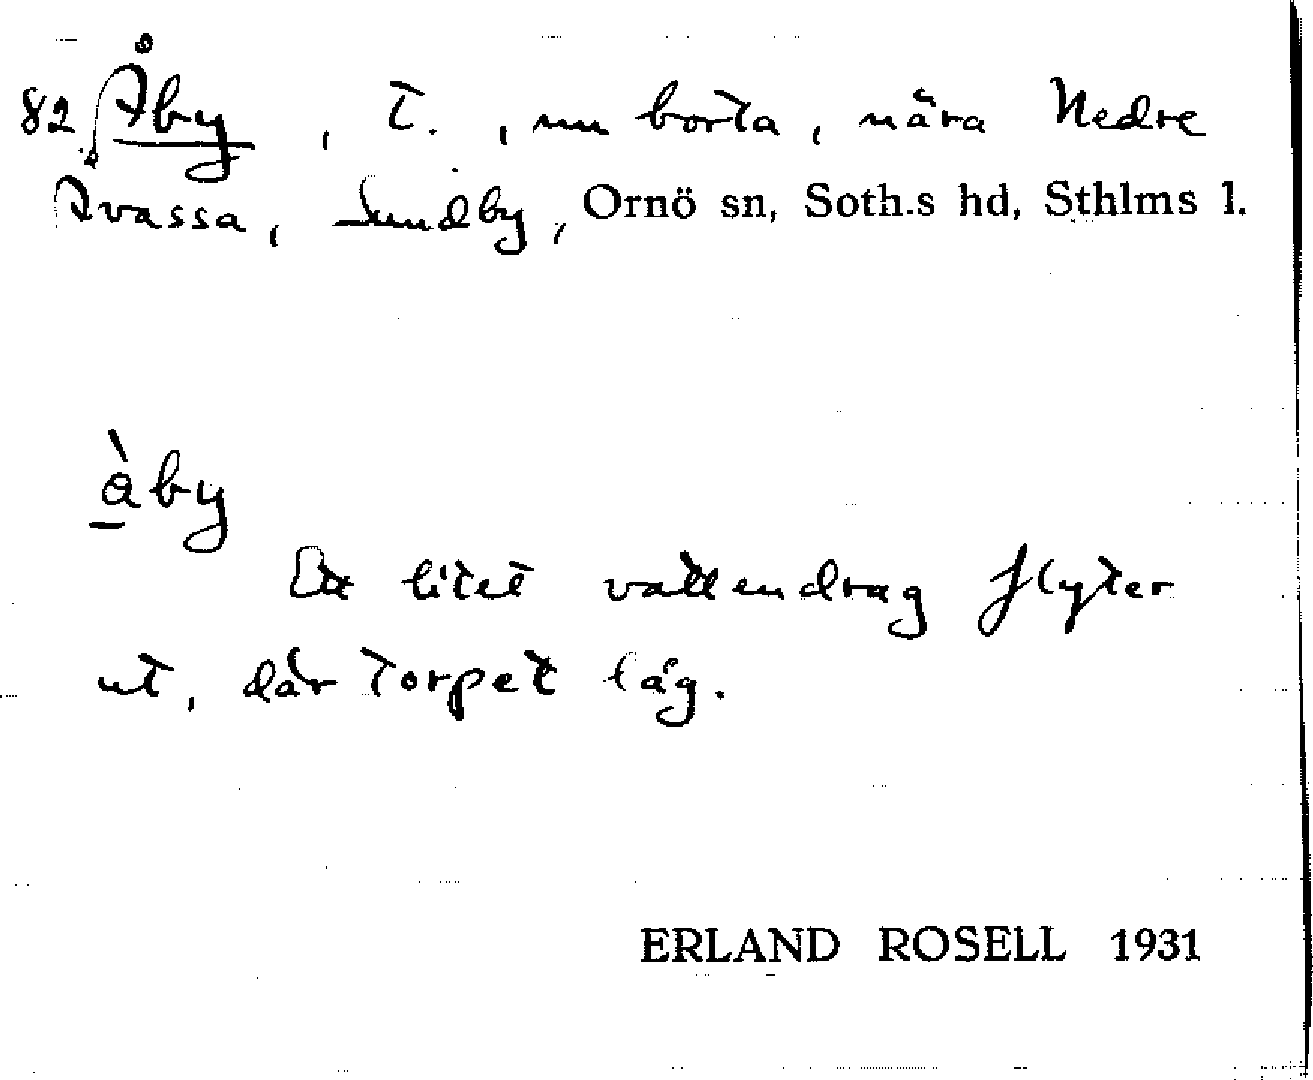 82 Åby, t., nu borta, nära Nedre
Avassa, Sundby, Ornö sn, Soth.s hd, Sthlms l.
å̀by
Ett litet vattendrag flyter
ut, där torpet låg.
ERLAND ROSELL 1931